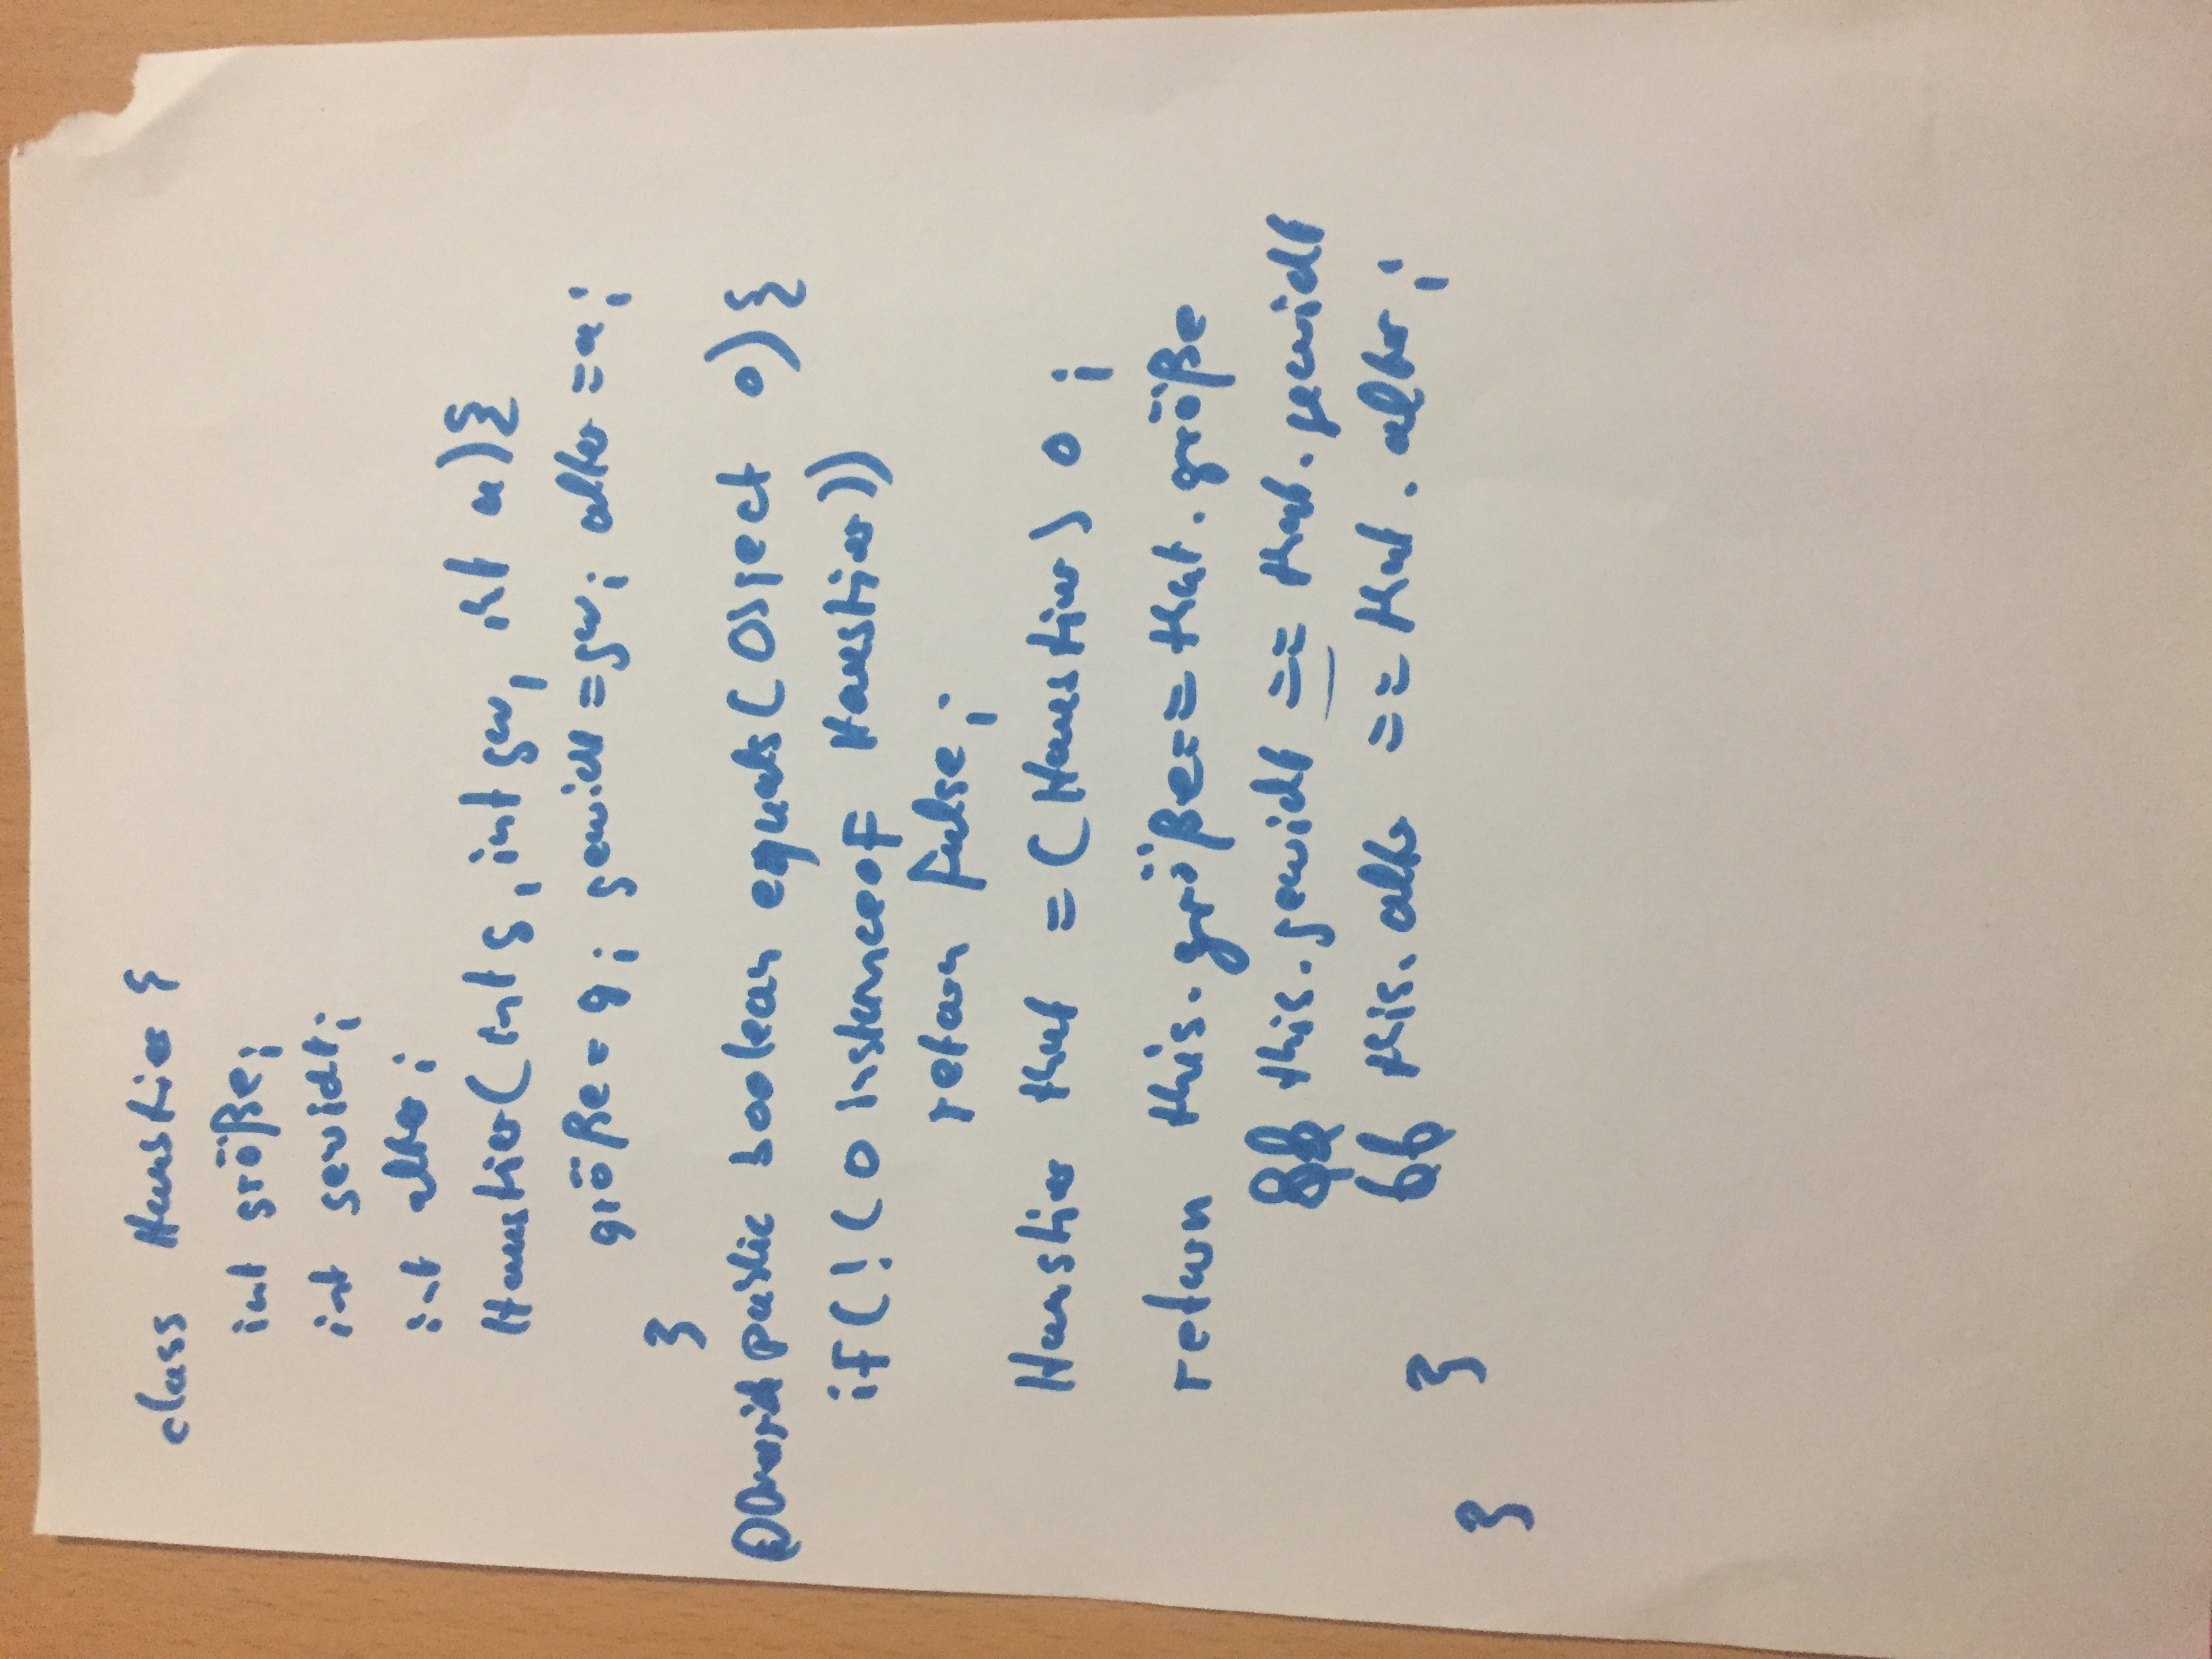 class Haustier {
int größe;
int gewicht;
int alter;
Haustier(int g, int gw, int a){
größe = g; gewicht = gw; alter = a;
}
@Override public boolean equals(Object o){
if(!(o instanceof Haustier))
return false;
Haustier that = (Haustier) o;
return this.größe == that.größe
&& this.gewicht == that.gewicht
&& this.alter == that.alter;
}
}